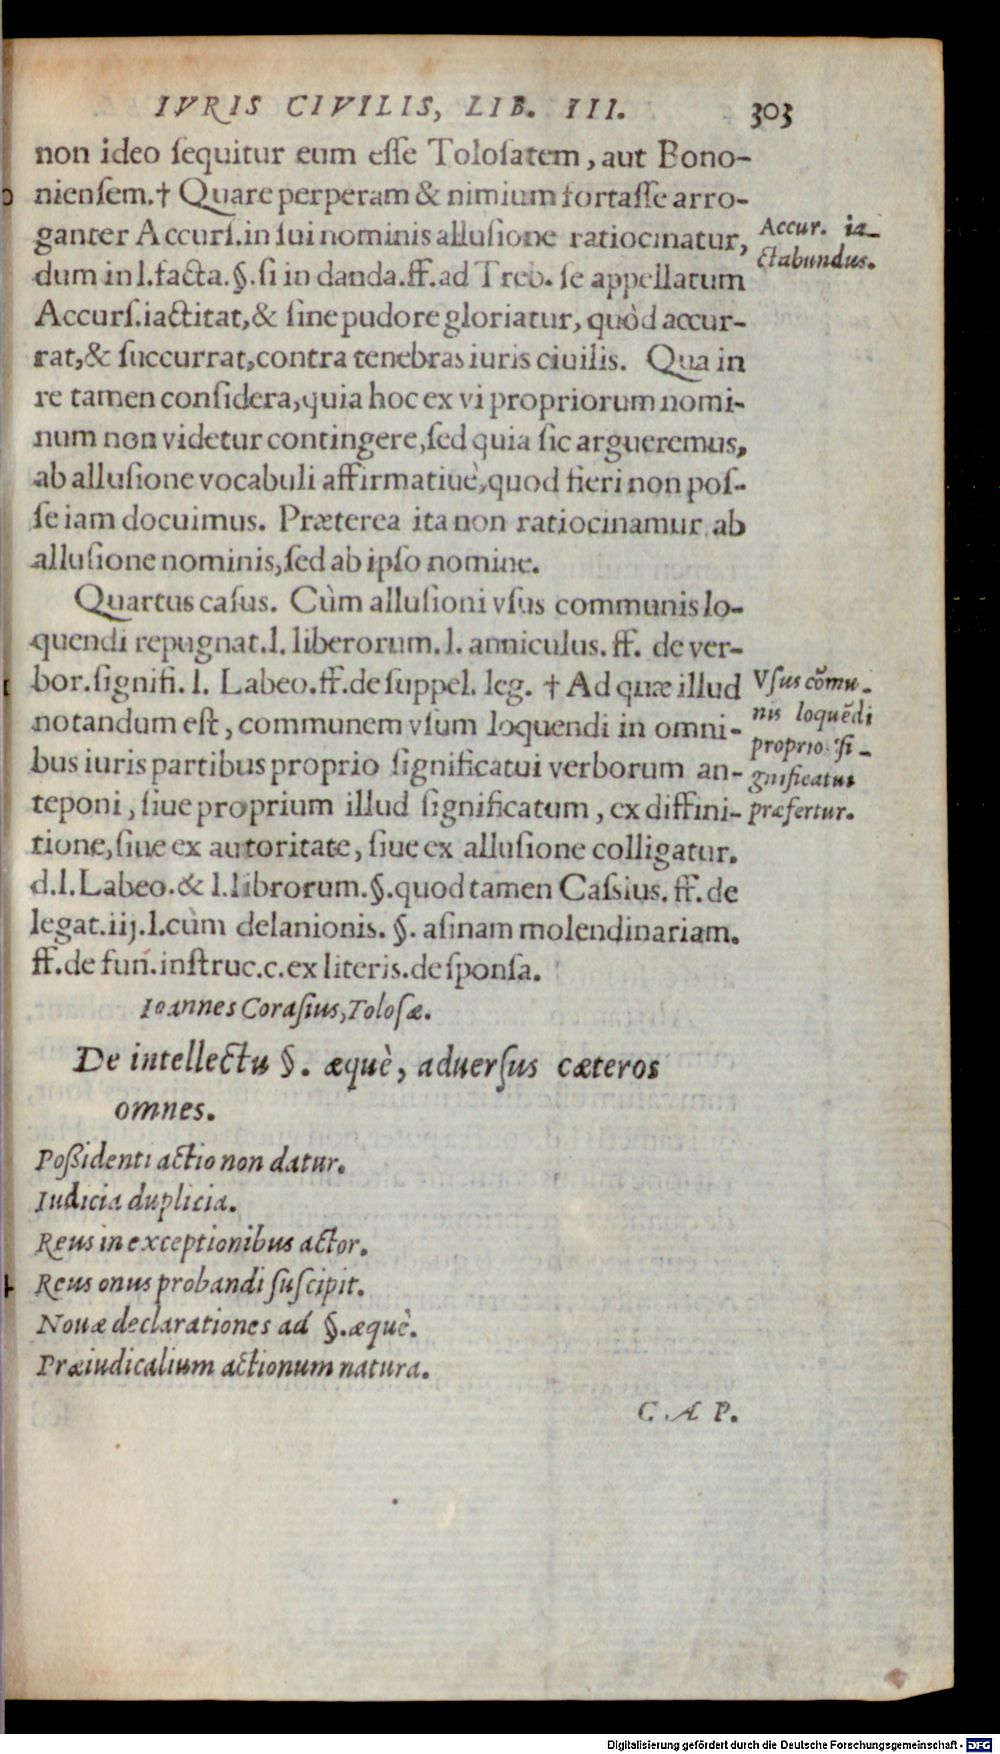 IVRIS CIVILIS, LIB. III. 303
non ideo ſequitur eum eſſe Toloſatem, aut Bono-
nienſem.† Quare perperam & nimium fortaſſe arro-
ganter Accurſ.in ſui nominis alluſione ratiocinatur,
dum in l.facta.§.ſi in danda.ff.ad Treb. ſe appellatum
Accurſ.iactitat,& ſine pudore gloriatur, quòd accur-
rat,& ſuccurrat,contra tenebras iuris ciuilis. Qua in
re tamen conſidera,quia hoc ex vi propriorum nomi-
num non videtur contingere,ſed quia ſic argueremus,
ab alluſione vocabuli affirmatiuè,quod fieri non poſ-
ſe iam docuimus. Præterea ita non ratiocinamur ab
alluſione nominis,ſed ab ipſo nomine.
Accur. ia-
ctabundus.
Quartus caſus. Cùm alluſioni vſus communis lo-
quendi repugnat.l. liberorum. l. anniculus. ff. de ver-
bor.ſignifi. l. Labeo.ff.de ſuppel. leg. † Ad quæ illud
notandum eſt, communem vſum loquendi in omni-
bus iuris partibus proprio ſignificatui verborum an-
teponi, ſiue proprium illud ſignificatum, ex diffini-
tione,ſiue ex autoritate, ſiue ex alluſione colligatur.
d.l.Labeo.& l.librorum.§.quod tamen Caſsius. ff. de
legat.iij.l.cùm delanionis. §. aſinam molendinariam.
ff.de fun̄.inſtruc.c.ex literis.de ſponſa.
Vſus cōmu-
nis loquēdi
proprio ſi-
gnificatui
præfertur.
Ioannes Coraſius,Toloſæ.
De intellectu §. æquè, aduerſus cæteros
omnes.
Poßidenti actio non datur.
Iudicia duplicia.
Reus in exceptionibus actor.
Reus onus probandi ſuſcipit.
Nouæ declarationes ad §.æquè.
Præiudicalium actionum natura.
C A P.
Digitalisierung gefördert durch die Deutsche Forschungsgemeinschaft - DFG